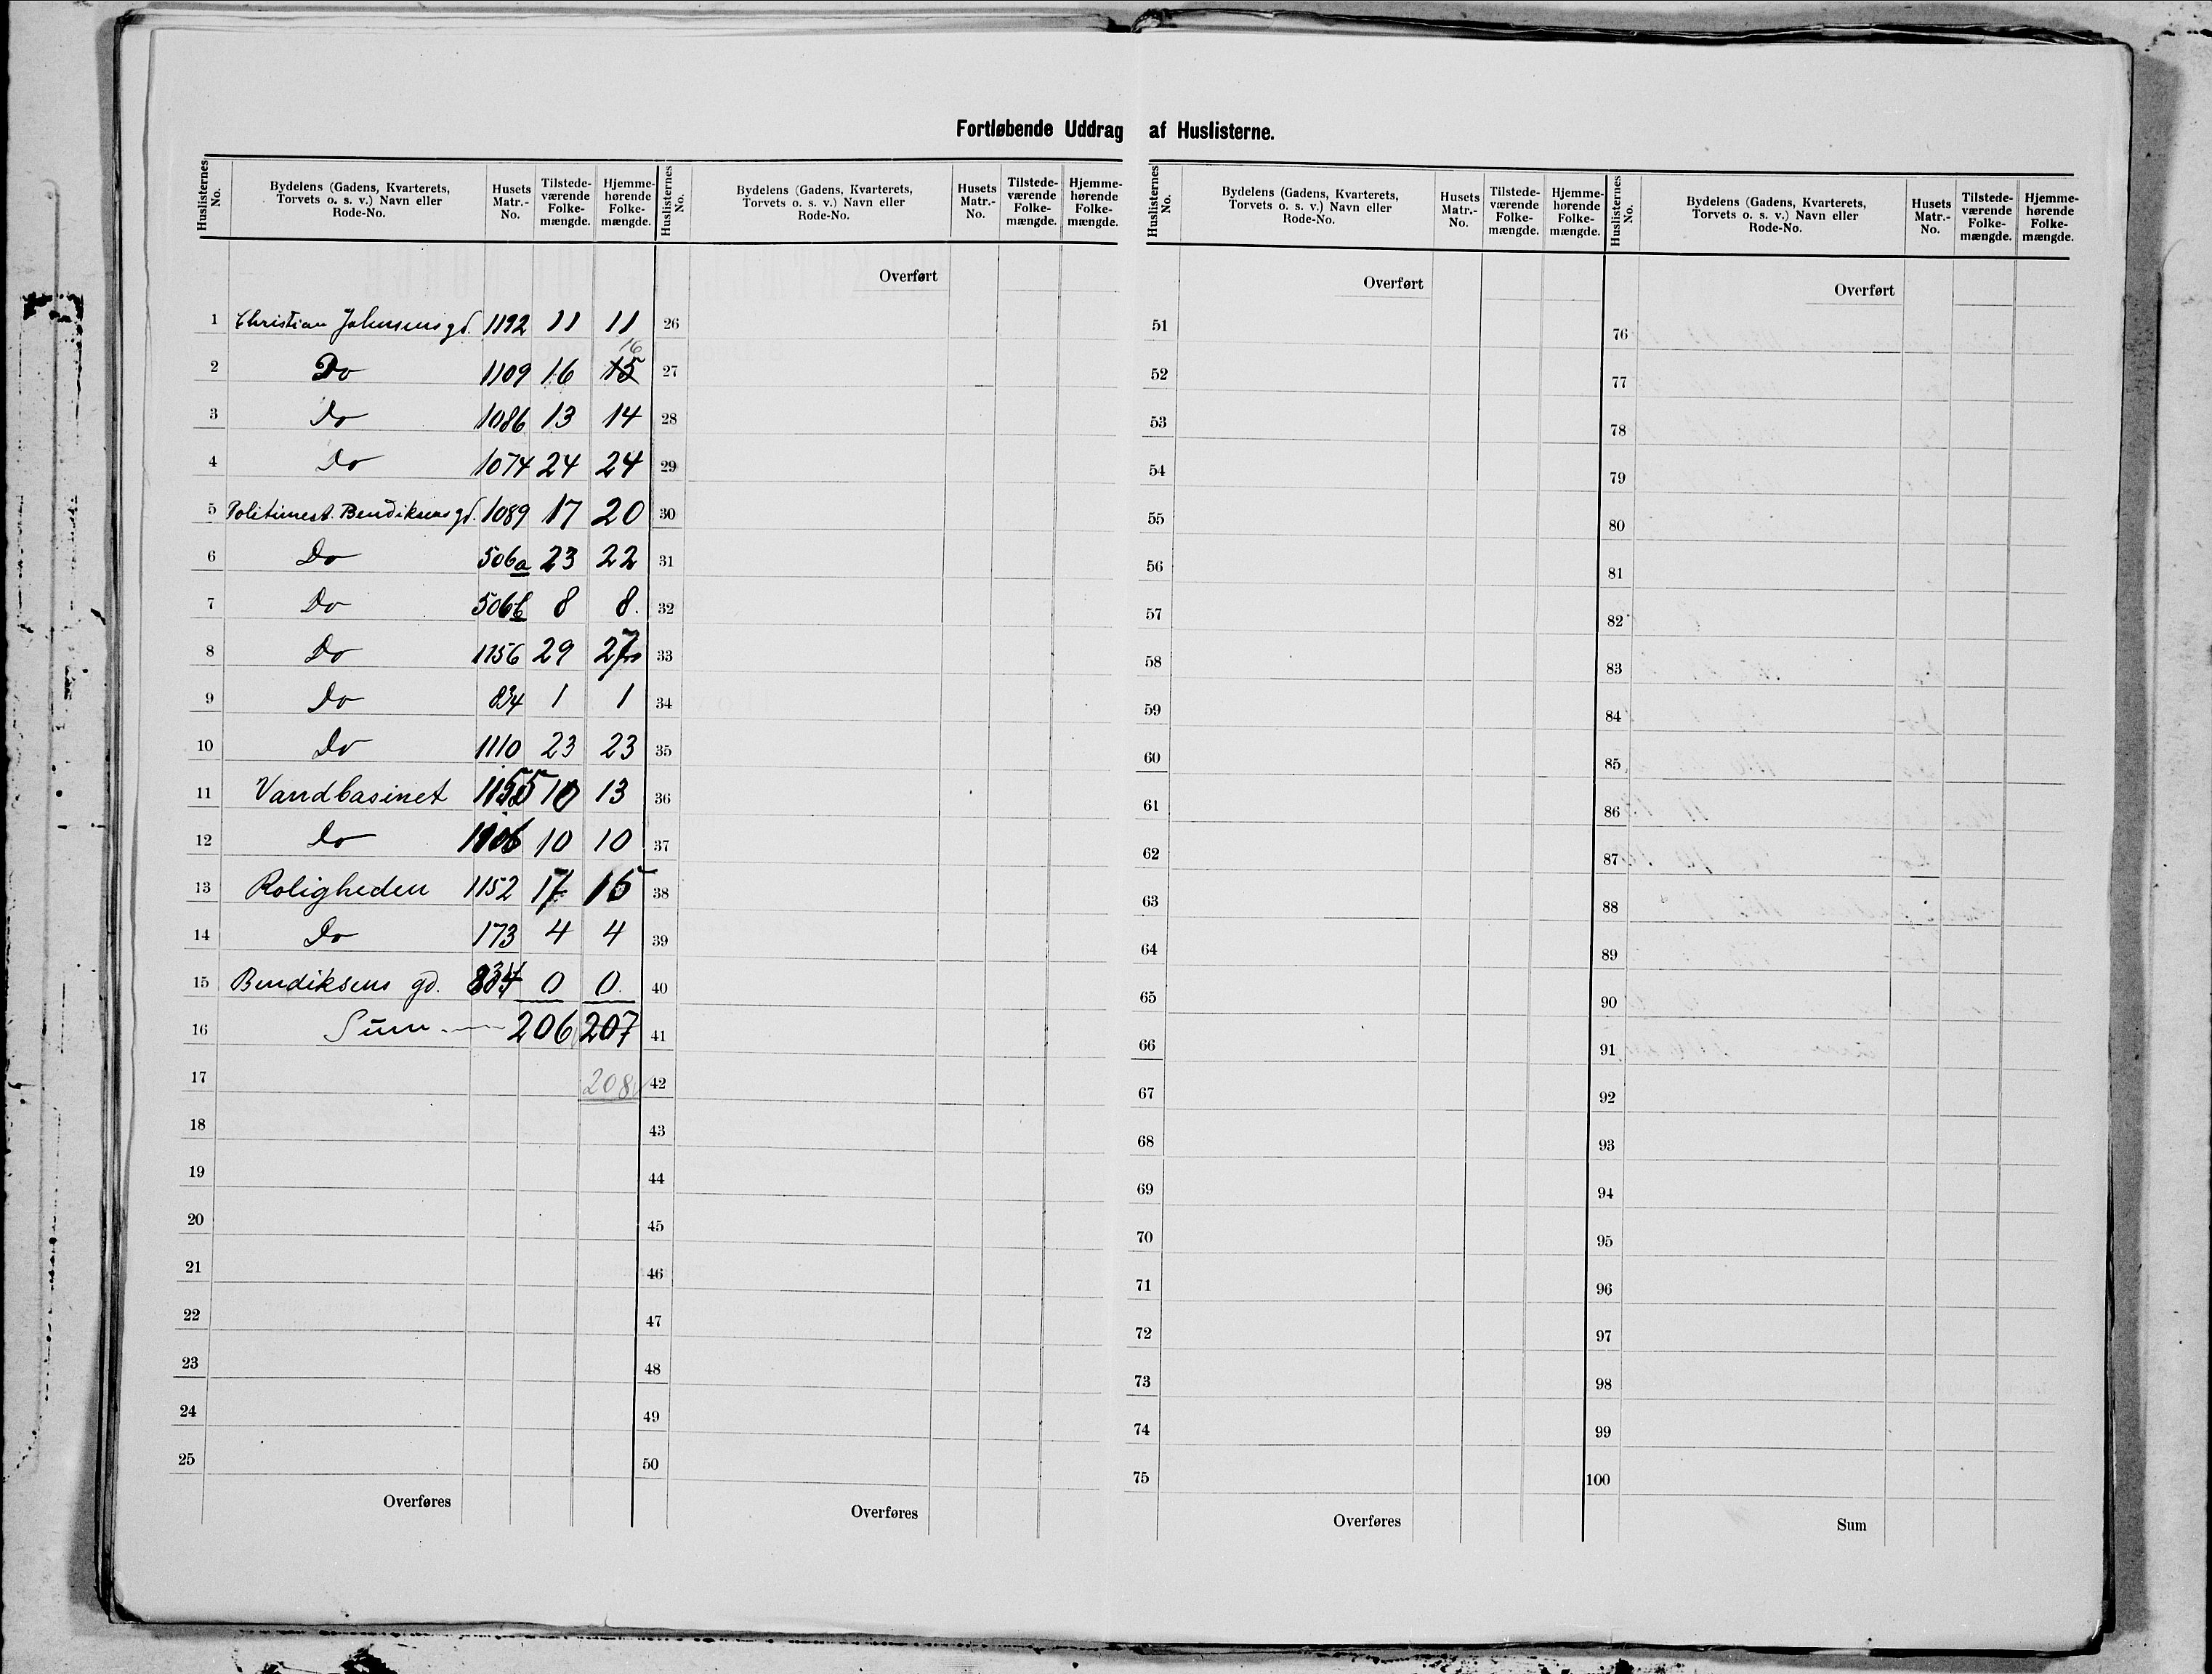 Fortløbende Uddrag af Huslisterne.
Huslisternes No. Bydelens (Gadens, Kvarterets, Torvets o. s. v.) Navn eller Rode-No. Husets Matr.-No. Tilstedeværende Folkemængde. Hjemmehørende Folkemængde.
1 Christian Johnsens gd. 1192 11 11
16
2 Do 1109 16 15
3 Do 1086 13 14
4 Do 1074 24 24
5 Politimest. Bendiksens gd. 1089 17 20
6 Do 506a 23 22
7 Do 506b 8 8.
8 Do 1156 29 27
9 Do 834 1 1
10 Do 1110 23 23
11 Vandbasinet 10 13
12 Do 10 10
13 Roligheden 1152 17 15
14 Do 173 4 4
15 Bendiksens gd. 834 0 0
16 Sum 206 207
17 208
18
19
20
21
22
23
24
25
Overføres
Huslisternes No. Bydelens (Gadens, Kvarterets, Torvets o. s. v.) Navn eller Rode-No. Husets Matr.-No. Tilstedeværende Folkemængde. Hjemmehørende Folkemængde.
Overført
26
27
28
29
30
31
32
33
34
35
36
37
38
39
40
41
42
43
44
45
46
47
48
49
50
Overføres
Huslisternes No. Bydelens (Gadens, Kvarterets, Torvets o. s. v.) Navn eller Rode-No. Husets Matr.-No. Tilstedeværende Folkemængde. Hjemmehørende Folkemængde.
Overført
51
52
53
54
55
56
57
58
59
60
61
62
63
64
65
66
67
68
69
70
71
72
73
74
75
Overføres
Huslisternes No. Bydelens (Gadens, Kvarterets, Torvets o. s. v.) Navn eller Rode-No. Husets Matr.-No. Tilstedeværende Folkemængde. Hjemmehørende Folkemængde.
Overført
76
77
78
79
80
81
82
83
84
85
86
87
88
89
90
91
92
93
94
95
96
97
98
99
100
Sum